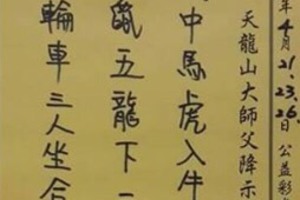 年4月21.23.26日公益彩
天龍山大師父降示
中馬虎入牛
鼠五龍下一
輪車三人坐合